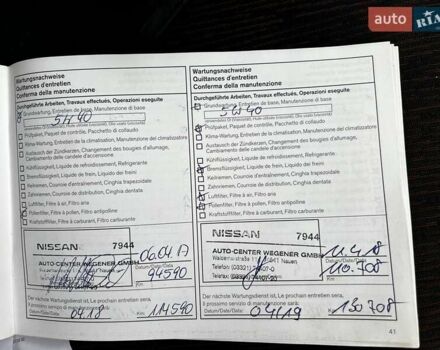 auto
RIA
Wartungsnachweise
Quittances d'entretien
Conferma della manutenzione
Durchgeführte Arbeiten, Travaux effectués, Operazioni eseguite
Grundwartung, Entretien de base, Manutenzione di base
5W40
Prüfpaket, Paquet de contrôle, Pacchetto di collaudo
Klima-Wartung, Entretien de la climatisation, Manutenzione del climatizzatore
Austausch der Zündkerzen, Changement des bougies d'allumage,
Cambiamento delle candele d'accensione
Kühlflüssigkeit, Liquide de refroidissement, Refrigerante
Bremsflüssigkeit, Liquide de frein, Liquido dei freni
Keilriemen, Courroie d'entraînement, Cinghia trapezoidale
Zahnriemen, Courroie de distribution, Cinghia dentata
Luftfilter, Filtre à air, Filtro aria
Pollenfilter, Filtre à pollen, Filtro antipolline
Kraftstofffilter, Filtre à carburant, Filtro carburante
NISSAN 7944
AUTO-CENTER WEGENER GMBH
06.04.17
Datum/Date/Data
94590
km
Der nächste Wartungsdienst ist, Le prochain entretien sera,
Il prossimo servizio di manutenzione sarà:
Datum/Date/Data 04.18 km 114590
Wartungsnachweise
Quittances d'entretien
Conferma della manutenzione
Durchgeführte Arbeiten, Travaux effectués, Operazioni eseguite
Grundwartung, Entretien de base, Manutenzione di base
5W40
Prüfpaket, Paquet de contrôle, Pacchetto di collaudo
Klima-Wartung, Entretien de la climatisation, Manutenzione del climatizzatore
Austausch der Zündkerzen, Changement des bougies d'allumage,
Cambiamento delle candele d'accensione
Kühlflüssigkeit, Liquide de refroidissement, Refrigerante
Bremsflüssigkeit, Liquide de frein, Liquido dei freni
Keilriemen, Courroie d'entraînement, Cinghia trapezoidale
Zahnriemen, Courroie de distribution, Cinghia dentata
Luftfilter, Filtre à air, Filtro aria
Pollenfilter, Filtre à pollen, Filtro antipolline
Kraftstofffilter, Filtre à carburant, Filtro carburante
NISSAN 7944
AUTO-CENTER WEGENER GMBH
Nauen
Telefon: (03321)
Telefax:
11.4.18
Datum/Date/Data
110.708
km
Der nächste Wartungsdienst ist, Le prochain entretien sera,
Il prossimo servizio di manutenzione sarà:
Datum/Date/Data 04/19 km 130708
41